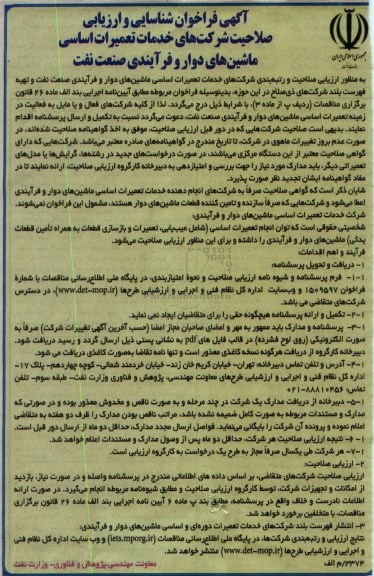 آگهی فراخوان شناسایی و ارزیابی
صلاحیت شرکت‌های خدمات تعمیرات اساسی
ماشین‌های دوار و فرآیندی صنعت نفت
به منظور ارزیابی صلاحیت و رتبه‌بندی شرکت‌های خدمات تعمیرات اساسی ماشین‌های دوار و فرآیندی صنعت نفت و تهیه
فهرست بلند شرکت‌های ذی‌صلاح در این حوزه، بدینوسیله فراخوان مربوطه مطابق آیین‌نامه اجرایی بند الف ماده ۲۶ قانون
برگزاری مناقصات (ردیف پ از ماده ۳)، با شرایط ذیل درج می‌گردد. لذا از کلیه شرکت‌های فعال و یا مایل به فعالیت در
زمینه تعمیرات اساسی ماشین‌های دوار و فرآیندی صنعت نفت، دعوت می‌گردد نسبت به تکمیل و ارسال پرسشنامه اقدام
نمایند. بدیهی است صلاحیت شرکت‌هایی که در دور قبل ارزیابی صلاحیت، موفق به اخذ گواهینامه صلاحیت شده‌اند، در
صورت عدم بروز تغییرات ماهوی در شرکت، تا تاریخ مندرج در گواهینامه‌های صادره معتبر می‌باشد. شرکت‌هایی که دارای
گواهی صلاحیت معتبر از این دستگاه مرکزی می‌باشند، در صورت درخواست‌های جدید در رشته‌ها، گرایش‌ها یا مدل‌های
تعمیراتی دیگر، باید مدارک مورد نیاز را جهت بررسی و امتیازدهی به دبیرخانه کارگروه ارزیابی صلاحیت، ارائه نمایند تا در
مفاد گواهینامه ایشان تجدید نظر صورت پذیرد.
شایان ذکر است که گواهی صلاحیت صرفاً به شرکت‌های انجام دهنده خدمات تعمیرات اساسی ماشین‌های دوار و فرآیندی
اعطا می‌شود و شرکت‌هایی که صرفاً سازنده و تامین کننده قطعات ماشین‌های دوار هستند، مشمول این فراخوان نمی‌شوند.
شرکت خدمات تعمیرات اساسی ماشین‌های دوار و فرآیندی:
شخصیتی حقوقی است که توان انجام تعمیرات اساسی (شامل عیب‌یابی، تعمیرات و بازسازی قطعات به همراه تأمین قطعات
یدکی) ماشین‌های دوار و فرآیندی را داشته و برای این منظور ارزیابی صلاحیت می‌شود.
فرآیند و اهم اقدامات:
۱- دریافت و تحویل پرسشنامه:
۱-۱- فرم پرسشنامه و شیوه نامه ارزیابی صلاحیت و نحوۀ امتیازبندی، در پایگاه ملی اطلاع‌رسانی مناقصات با شمارۀ
فراخوان ۱۵۰۹۵۹۷ و وبسایت اداره کل نظام فنی و اجرایی و ارزشیابی طرح‌ها (www.det-mop.ir)، در دسترس
شرکت‌های متقاضی می باشد.
۲-۱- تکمیل و ارائه پرسشنامه هیچگونه حقی را برای متقاضیان ایجاد نمی نماید.
۳-۱- پرسشنامه و مدارک باید ممهور به مهر و امضای صاحبان مجاز امضا (حسب آخرین آگهی تغییرات شرکت) صرفاً به
صورت الکترونیکی (روی لوح فشرده) در قالب فایل های pdf به نشانی پستی ذیل ارسال گردد و رسید دریافت شود.
دبیرخانه کارگروه از دریافت هرگونه نسخه کاغذی معذور است و تنها نامه تقاضا به‌صورت کاغذی دریافت می شود.
۴-۱- آدرس و تلفن تماس دبیرخانه: تهران- خیابان کریم خان زند- خیابان خردمند شمالی- کوچه چهاردهم- پلاک ۱۷-
اداره کل نظام فنی و اجرایی و ارزشیابی طرح‌های معاونت مهندسی، پژوهش و فناوری وزارت نفت- طبقه سوم- تلفن
تماس: ۸۸۸۱۰۴۵۶-۰۲۱
۵-۱- دبیرخانه از دریافت مدارک یک شرکت در چند مرحله و به صورت ناقص و مخدوش معذور بوده و در صورتی که
مدارک و مستندات مربوطه به صورت کامل ضمیمه نشده باشد، مراتب ناقص بودن مدارک را ظرف دو هفته به متقاضی
اعلام نموده و پرونده آن شرکت را بایگانی می‌نماید. فواصل ارسال مجدد مدارک، حداقل دو ماه از ارسال دور قبل است.
۶-۱- نتیجه ارزیابی صلاحیت هر شرکت، حداقل دو ماه پس از وصول مدارک و مستندات اعلام خواهد شد.
۷-۱- هر شرکت طی یکسال صرفاً مجاز به طرح یک درخواست به کارگروه ارزیابی است.
۲- ارزیابی صلاحیت:
ارزیابی صلاحیت شرکت‌های متقاضی، بر اساس داده های اطلاعاتی مندرج در پرسشنامه واصله و در صورت نیاز، بازدید
از امکانات و تجهیزات شرکت، توسط کارگروه ارزیابی صلاحیت و مطابق شیوه‌نامه مربوطه انجام می‌گیرد. در صورت ارائه
اطلاعات نادرست و خلاف واقع در پرسشنامه، مطابق بند پ ماده ۶ آیین نامه اجرایی بند الف ماده ۲۶ قانون برگزاری
مناقصات، با متخلفین برخورد خواهد شد.
۳- انتشار فهرست بلند شرکت‌های خدمات تعمیرات دوره‌ای و اساسی ماشین‌های دوار و فرآیندی:
نتایج ارزیابی و رتبه‌بندی شرکت‌ها، در پایگاه ملی اطلاع‌رسانی مناقصات (iets.mporg.ir) و وب سایت اداره کل نظام فنی
و اجرایی و ارزشیابی طرح‌ها (www.det-mop.ir) منتشر خواهد شد.
۲۳۷۴/م الف
معاونت مهندسی،پژوهش و فناوری- وزارت نفت